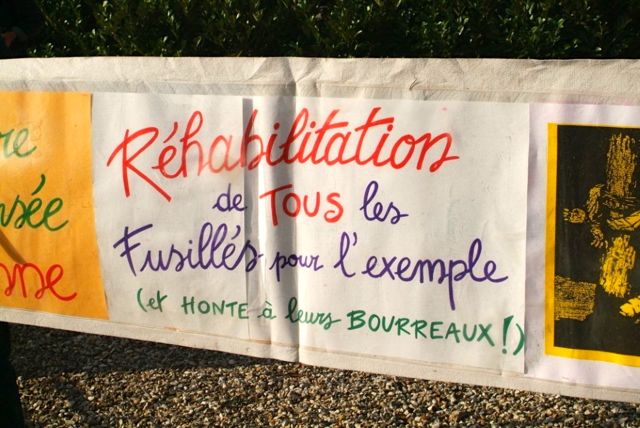 Réhabilitation
de TOUS les
Fusillés pour l'exemple
(et HONTE à leurs BOURREAUX !)